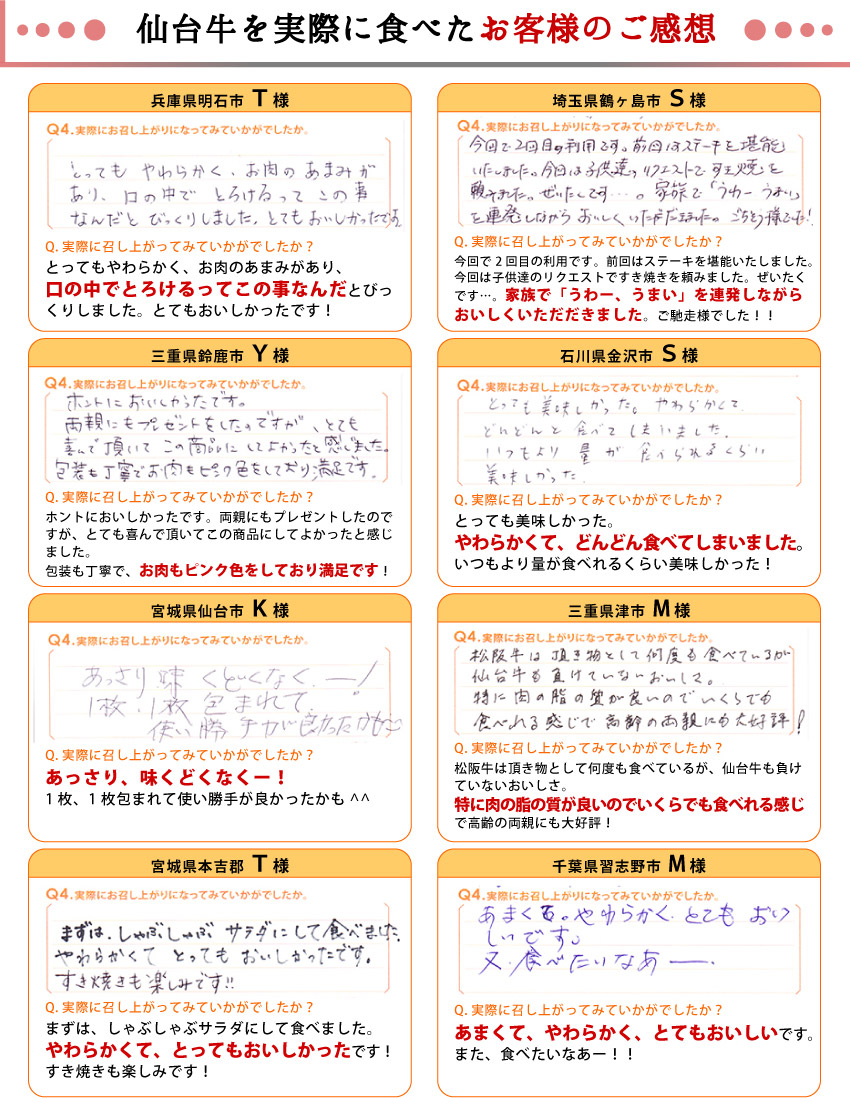 仙台牛を実際に食べたお客様のご感想
兵庫県明石市 T 様
Q4.実際にお召し上がりになってみていかがでしたか。
とっても やわらかく、お肉の あまみが
あり、口の中で とろけるって この事
なんだと びっくりしました。とても おいしかったです
Q. 実際に召し上がってみていかがでしたか？
とってもやわらかく、お肉のあまみがあり、
口の中でとろけるってこの事なんだとびっ
くりしました。とてもおいしかったです！
埼玉県鶴ヶ島市 S 様
Q4.実際にお召し上がりになってみていかがでしたか。
今回で2回目の利用です。前回はステーキを堪能
いたしました。今回は子供達のリクエストですき焼を
頼みました。ぜいたくです…。家族で「うわー うまい」
を連発しながら おいしく いただだきました。ごちそう様でした!
Q. 実際に召し上がってみていかがでしたか？
今回で２回目の利用です。前回はステーキを堪能いたしました。
今回は子供達のリクエストですき焼きを頼みました。ぜいたく
です…。家族で「うわー、うまい」を連発しながら
おいしくいただだきました。ご馳走様でした！！
三重県鈴鹿市 Y 様
Q4.実際にお召し上がりになってみていかがでしたか。
ホントにおいしかったです。
両親にもプレゼントをしたのですが、とても
喜んで頂いて この商品に してよかったと感じました。
包装も丁寧でお肉もピンク色をしており満足です。
Q. 実際に召し上がってみていかがでしたか？
ホントにおいしかったです。両親にもプレゼントしたので
すが、とても喜んで頂いてこの商品にしてよかったと感じ
ました。
包装も丁寧で、お肉もピンク色をしており満足です！
石川県金沢市 S 様
Q4.実際にお召し上がりになってみていかがでしたか。
とっても 美味しかった。やわらかくて
どんどんと 食べて しまいました。
いつもより 量 が 食べられるくらい
美味しかった
Q. 実際に召し上がってみていかがでしたか？
とっても美味しかった。
やわらかくて、どんどん食べてしまいました。
いつもより量が食べれるくらい美味しかった！
宮城県仙台市 K 様
Q4.実際にお召し上がりになってみていかがでしたか。
あっさり 味 くどくなく ー!
1枚・1枚 包まれて
使い勝手が良かったかも
Q. 実際に召し上がってみていかがでしたか？
あっさり、味くどくなくー！
１枚、１枚包まれて使い勝手が良かったかも ^^
三重県津市 M 様
Q4.実際にお召し上がりになってみていかがでしたか。
松阪牛は 頂き物として何度も 食べているが
仙台牛も 負けていないおいしさ。
特に 肉の 脂の 質が良いので いくらでも
食べれる感じで 高齢の両親にも大好評!
Q. 実際に召し上がってみていかがでしたか？
松阪牛は頂き物として何度も食べているが、仙台牛も負け
ていないおいしさ。
特に肉の脂の質が良いのでいくらでも食べれる感じ
で高齢の両親にも大好評！
宮城県本吉郡 T 様
Q4.実際にお召し上がりになってみていかがでしたか。
まずは、しゃぶしゃぶ サラダにして食べました。
やわらかくて とっても おいしかったです。
すき焼きも楽しみです!!
Q. 実際に召し上がってみていかがでしたか？
まずは、しゃぶしゃぶサラダにして食べました。
やわらかくて、とってもおいしかったです！
すき焼きも楽しみです！
千葉県習志野市 M 様
Q4.実際にお召し上がりになってみていかがでしたか。
あまく 。やわらかく とても おい
しいです。
又 食べたいなあー.
Q. 実際に召し上がってみていかがでしたか？
あまくて、やわらかく、とてもおいしいです。
また、食べたいなあー！！